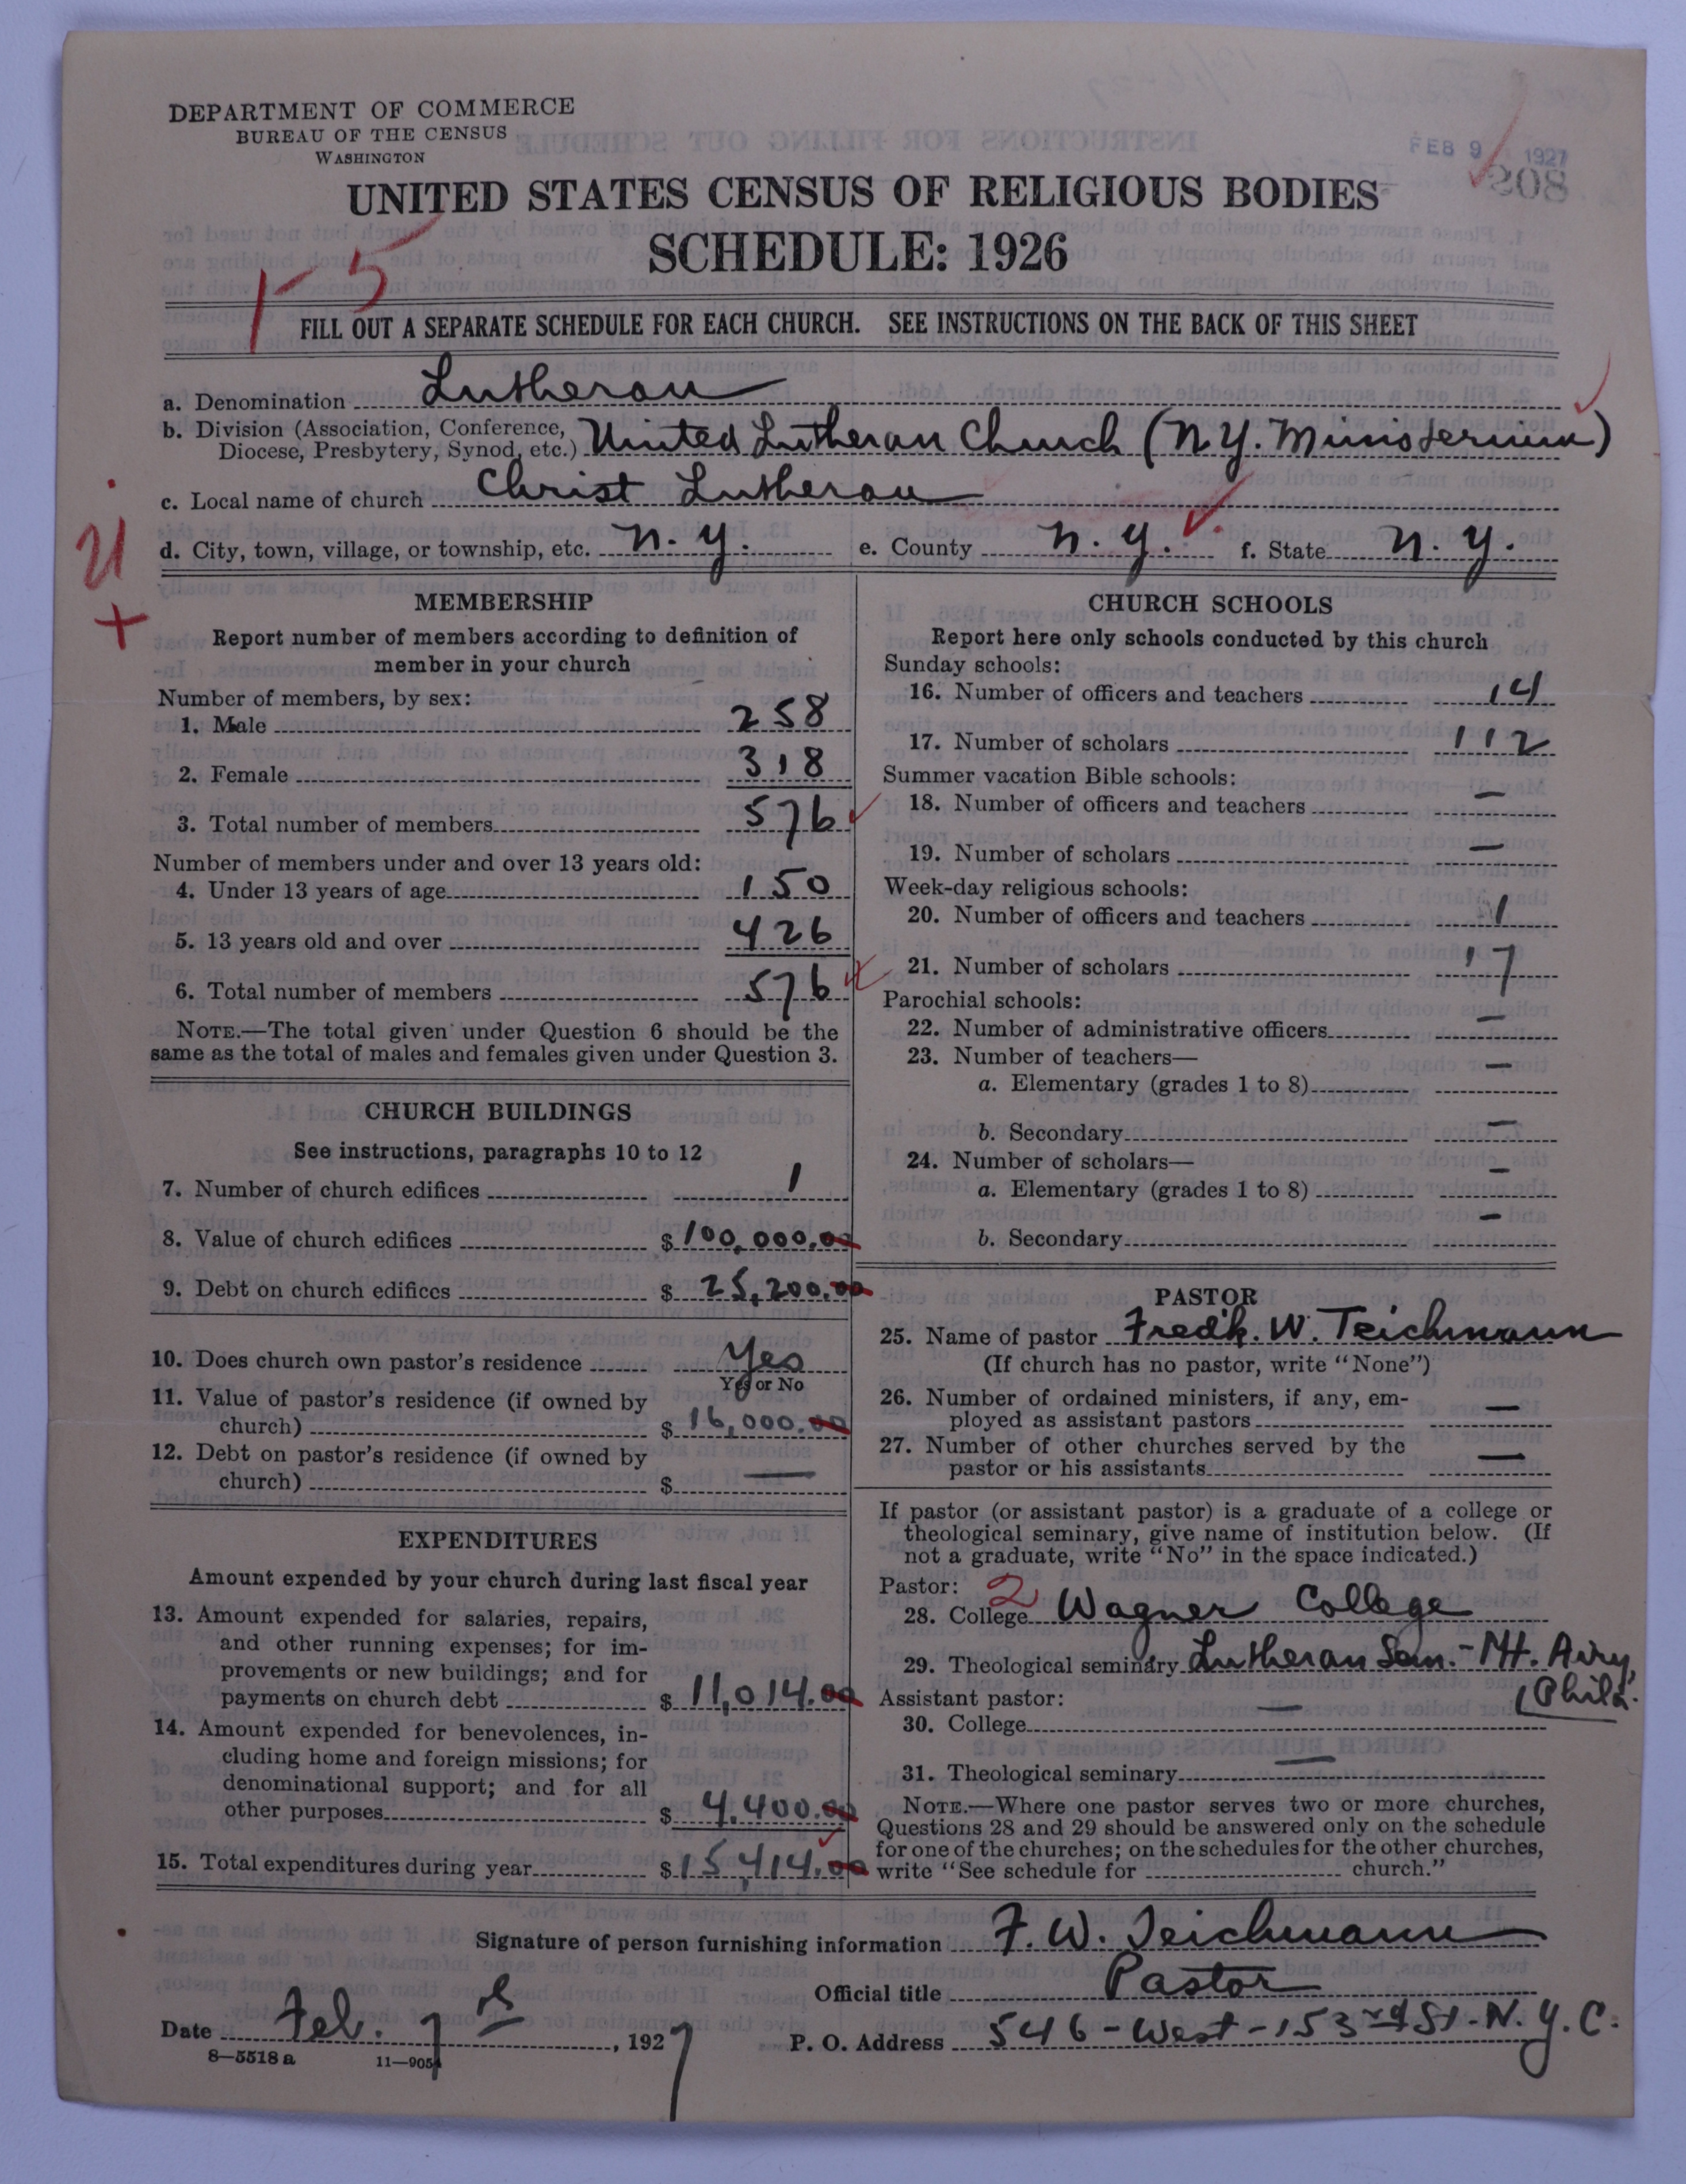 DEPARTMENT OF COMMERCE
BUREAU OF THE CENSUS
WASHINGTON
FEB 9 1927
208
UNITED STATES CENSUS OF RELIGIOUS BODIES
SCHEDULE: 1926
1-5
FILL OUT A SEPARATE SCHEDULE FOR EACH CHURCH. SEE INSTRUCTIONS ON THE BACK OF THIS SHEET
a. Denomination Lutheran
b. Division (Association, Conference, Diocese, Presbytery, Synod, etc.) United Lutheran Church (N.Y. Ministerium)
c. Local name of church Christ Lutheran
d. City, town, village, or township, etc. N.Y. e. County N.Y. f. State N.Y.
MEMBERSHIP
Report number of members according to definition of
member in your church
Number of members, by sex:
1. Male 258
2. Female 318
3. Total number of members 576
Number of members under and over 13 years old:
4. Under 13 years of age 150
5. 13 years old and over 426
6. Total number of members 576
NOTE.—The total given under Question 6 should be the
same as the total of males and females given under Question 3.
CHURCH BUILDINGS
See instructions, paragraphs 10 to 12
7. Number of church edifices 1
8. Value of church edifices $100,000.00
9. Debt on church edifices $ 25,200.00
10. Does church own pastor's residence Yes
Yes or No
11. Value of pastor's residence (if owned by
church) $ 16,000.00
12. Debt on pastor's residence (if owned by
church) $ —
EXPENDITURES
Amount expended by your church during last fiscal year
13. Amount expended for salaries, repairs,
and other running expenses; for im-
provements or new buildings; and for
payments on church debt $ 11,014.00
14. Amount expended for benevolences, in-
cluding home and foreign missions; for
denominational support; and for all
other purposes $ 4,400.00
15. Total expenditures during year $15,414.00
CHURCH SCHOOLS
Report here only schools conducted by this church
Sunday schools:
16. Number of officers and teachers 14
17. Number of scholars 112
Summer vacation Bible schools:
18. Number of officers and teachers —
19. Number of scholars —
Week-day religious schools:
20. Number of officers and teachers 1
21. Number of scholars 17
Parochial schools:
22. Number of administrative officers —
23. Number of teachers—
a. Elementary (grades 1 to 8) —
b. Secondary —
24. Number of scholars—
a. Elementary (grades 1 to 8) —
b. Secondary —
PASTOR
25. Name of pastor Fredk. W. Teichmann
(If church has no pastor, write "None")
26. Number of ordained ministers, if any, em-
ployed as assistant pastors —
27. Number of other churches served by the
pastor or his assistants —
If pastor (or assistant pastor) is a graduate of a college or
theological seminary, give name of institution below. (If
not a graduate, write "No" in the space indicated.)
Pastor: 2
28. College Wagner College
29. Theological seminary Lutheran Sem.- Mt. Airy,
Phila.
Assistant pastor:
30. College —
31. Theological seminary —
NOTE.—Where one pastor serves two or more churches,
Questions 28 and 29 should be answered only on the schedule
for one of the churches; on the schedules for the other churches,
write "See schedule for church."
Signature of person furnishing information F. W. Teichmann
Official title Pastor
Date Feb. 7th, 1927
P. O. Address 546-West-153rd St. N.Y.C.
8—5518a 11—9054